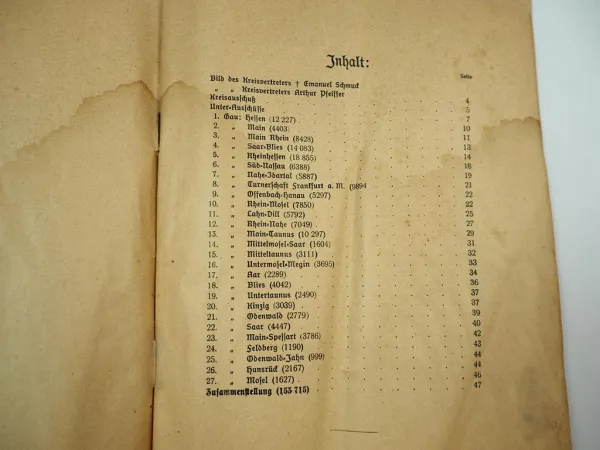 Inhalt:
Seite
Bild des Kreisvertreters † Emanuel Schmuck
„ „ Kreisvertreters Arthur Pfeiffer
Kreisausschuß 4
Unter-Ausschüsse 5
1. Gau: Hessen (12 227) 7
2. „ Main (4403) 10
3. „ Main Rhein (8428) 11
4. „ Saar-Blies (14 083) 13
5. „ Rheinhessen (18 855) 14
6. „ Süd-Nassau (6388) 18
7. „ Nahe-Idartal (5887) 19
8. „ Turnerschaft Frankfurt a. M. (9894 21
9. „ Offenbach-Hanau (5297) 22
10. „ Rhein-Mosel (7850) 22
11. „ Lahn-Dill (5792) 25
12. „ Rhein-Nahe (7049) 27
13. „ Main-Taunus (10 297) 29
14. „ Mittelmosel-Saar (1604) 31
15. „ Mitteltaunus (3111) 32
16. „ Untermosel-Megin (3695) 33
17. „ Aar (2289) 34
18. „ Blies (4042) 36
19. „ Untertaunus (2490) 37
20. „ Kinzig (3039) 37
21. „ Odenwald (2779) 39
22. „ Saar (4447) 40
23. „ Main-Spessart (3786) 42
24. „ Feldberg (1190) 43
25. „ Odenwald-Jahn (999) 44
26. „ Hunsrück (2167) 44
27. „ Mosel (1627) 46
Zusammenstellung (155 715) 47